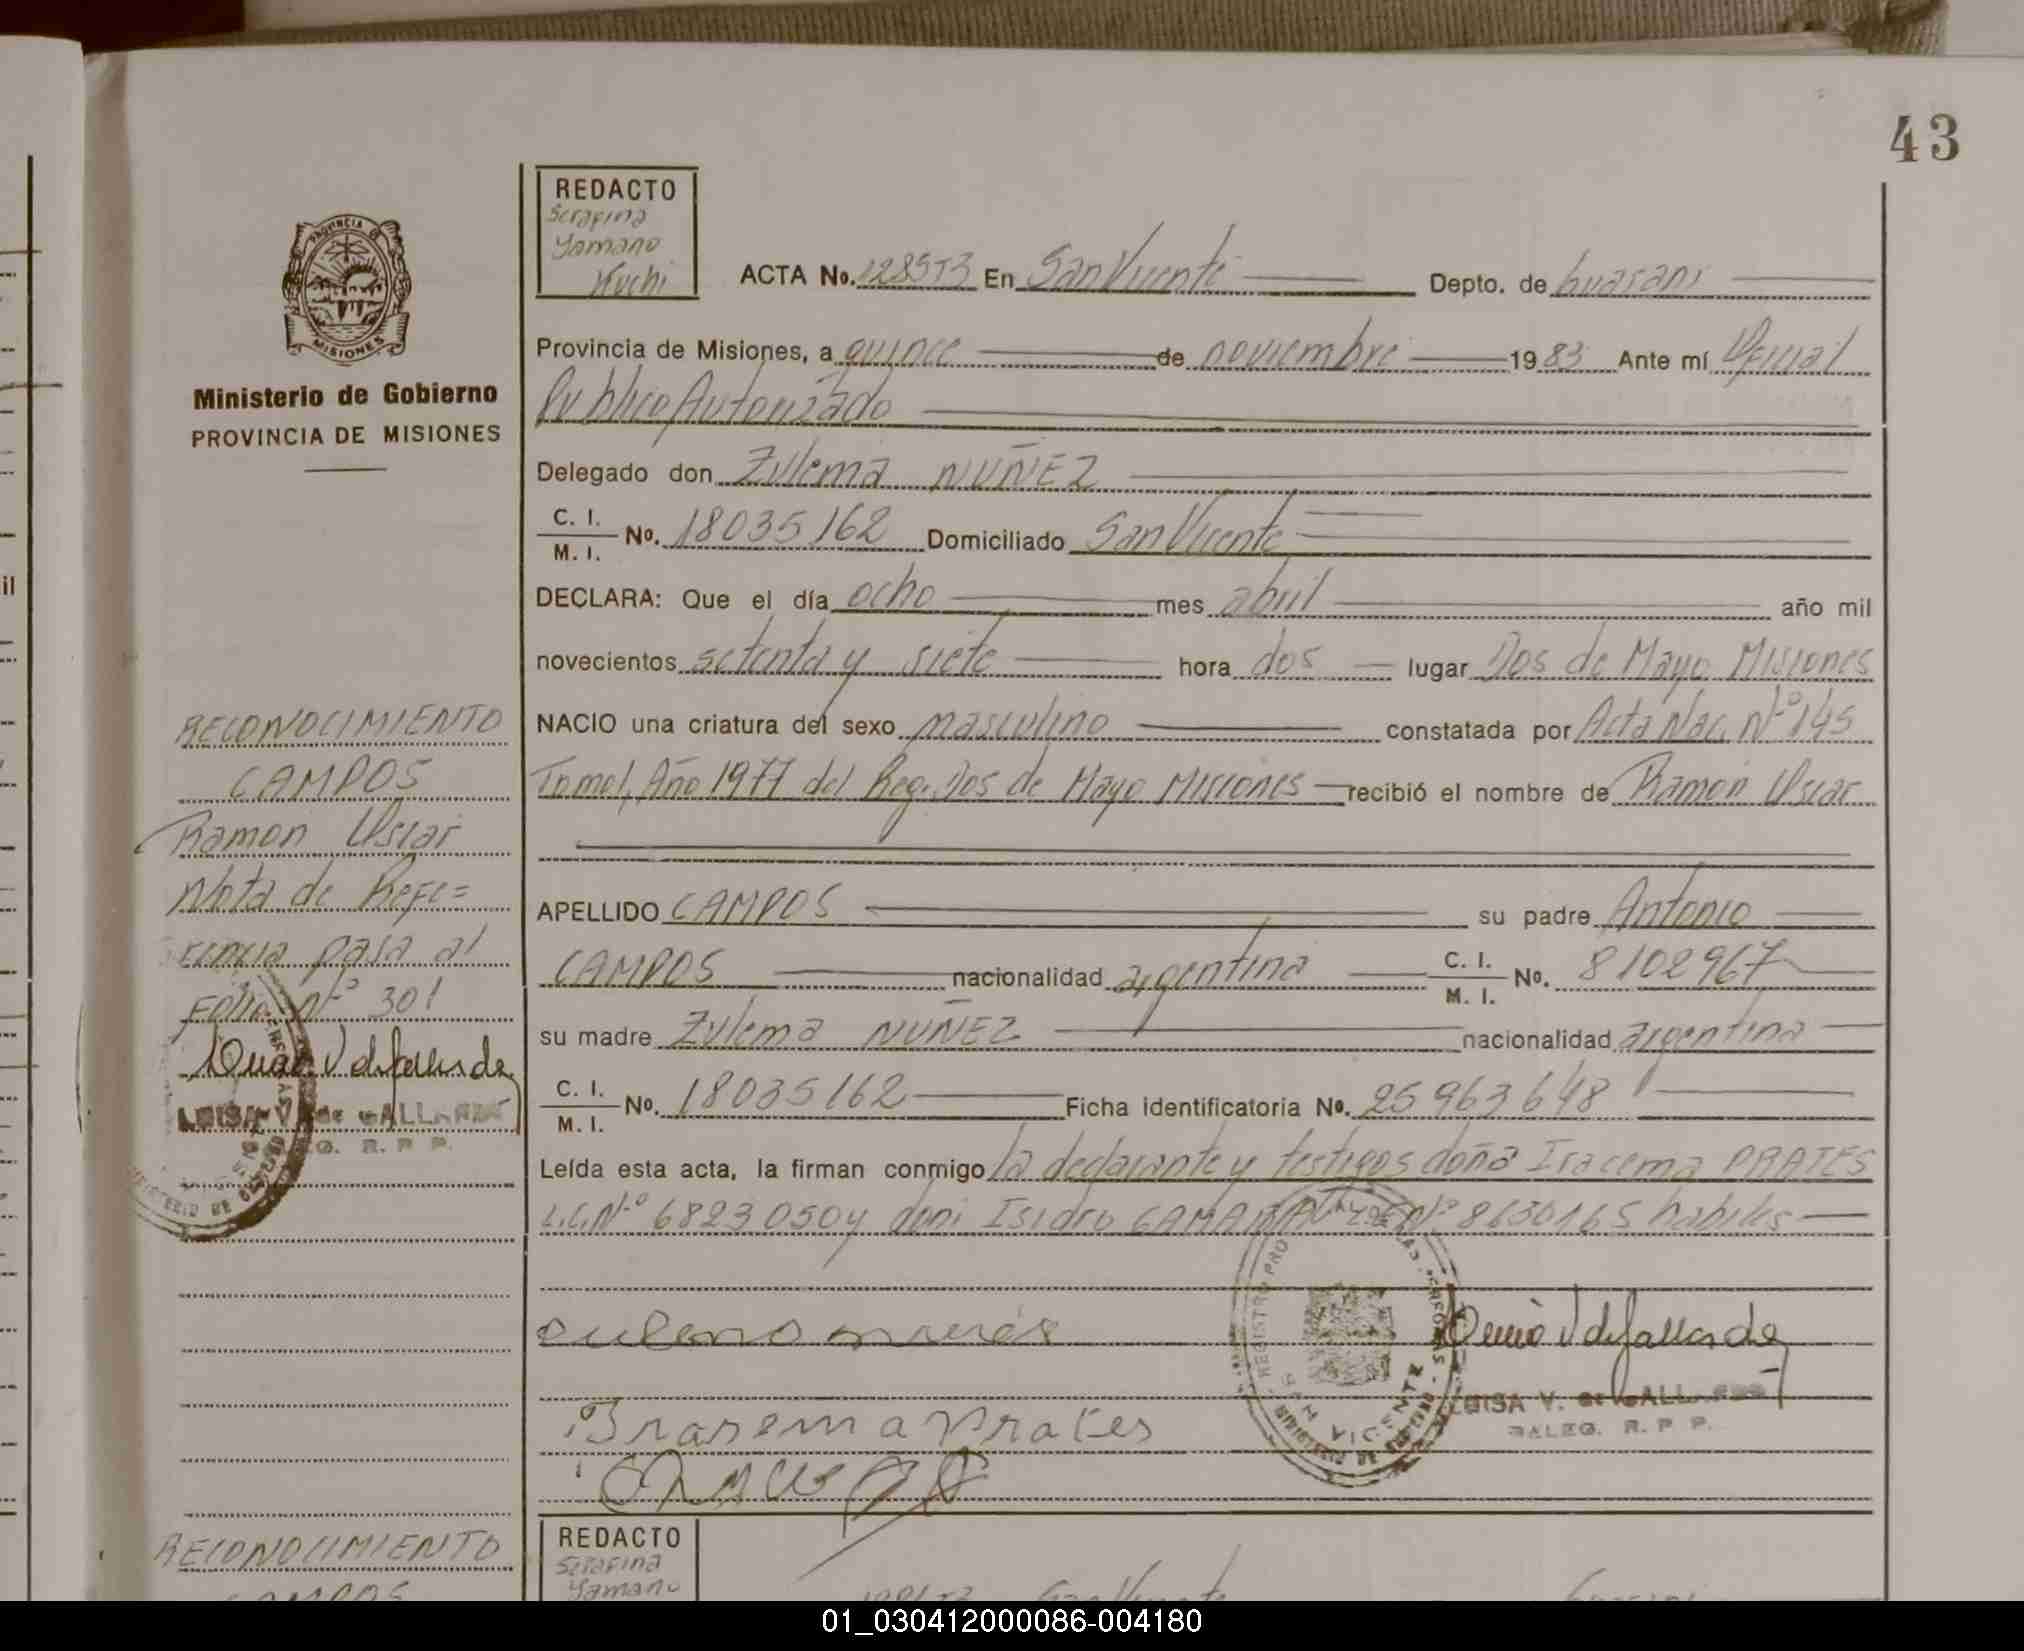 43
REDACTO
Serafina
Yamano
Kuchi
ACTA No. 128 T3 En San Vicente Depto. de Guarani
PROVINCIA DE
MISIONES
Provincia de Misiones, a quince de noviembre 1983 Ante mí Oficial
Ministerio de Gobierno
Publico Autorizado
PROVINCIA DE MISIONES
Delegado don Zulema NUÑEZ
C. I.
M. I. No. 18035162 Domiciliado San Vicente
DECLARA: Que el día ocho mes abril año mil
il
novecientos setenta y siete hora dos lugar Dos de Mayo Misiones
NACIO una criatura del sexo masculino constatada por Acta Nac. Nº 145
Tomo I, Año 1977 del Reg. Dos de Mayo Misiones recibió el nombre de Ramon Oscar
APELLIDO CAMPOS su padre Antonio
CAMPOS nacionalidad argentina C. I. M. I. No. 8102967
su madre Zulema NUÑEZ nacionalidad argentina
C. I.
M. I. No. 18035162 Ficha identificatoria No. 25963648
Leída esta acta, la firman conmigo la declarante y testigos doña Iracema PRATES
L.C.Nº 6823050 y don Isidro Nº 8630165 habiles
RECONOCIMIENTO
CAMPOS
Ramon Oscar
Nota de Refe=
rencia pasa al
Folio nº 301
LUISA V. de GALLARDO
DELEG. R. P. P.
REGISTRO PRO
SAN VICENTE
LUISA V. de GALLARDO
DELEG. R. P. P.
RECONOCIMIENTO
CAMPOS
REDACTO
Serafina
Yamano
San Vicente
01_030412000086-004180